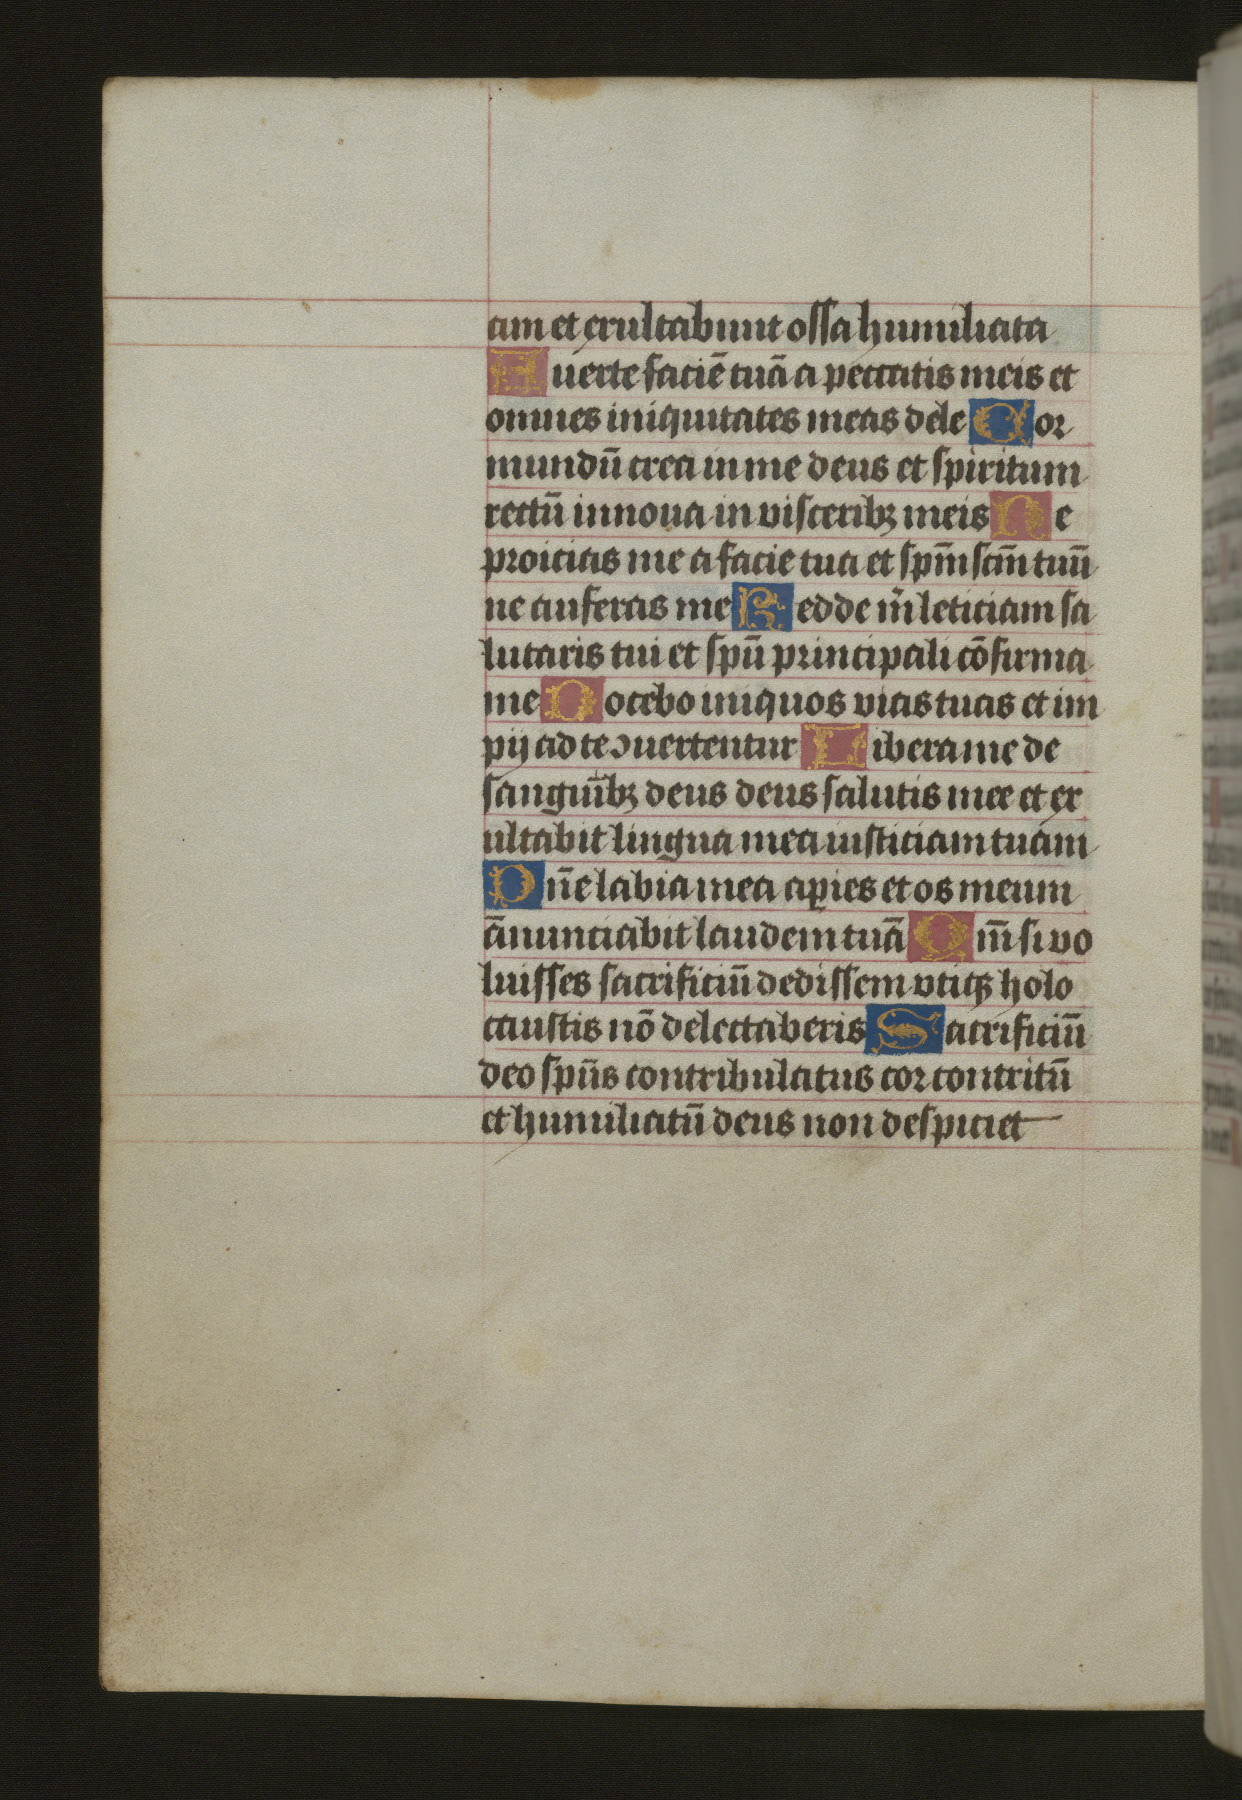 am et exultabunt ossa humiliata
Auerte faciē tuā a peccatis meis et
omnes iniquitates meas dele Cor
mundū crea in me deus et spiritum
rectū innoua in visceribꝫ meis Ne
proicias me a facie tua et spm̄ scm̄ tuū
ne auferas me Redde m̄ leticiam sa
lutaris tui et spū principali cōfirma
me Docebo iniquos vias tuas et im
pij ad te ɔuertentur Libera me de
sanguībꝫ deus deus salutis mee et ex
ultabit lingua mea iusticiam tuam
Dn̄e labia mea aꝑies et os meum
ānunciabit laudem tuā Qm̄ si vo
luisses sacrificiū dedissem vtiqꝫ holo
caustis nō delectaberis Sacrificiū
deo spūs contribulatus cor contritū
et humiliatū deus non despiciet